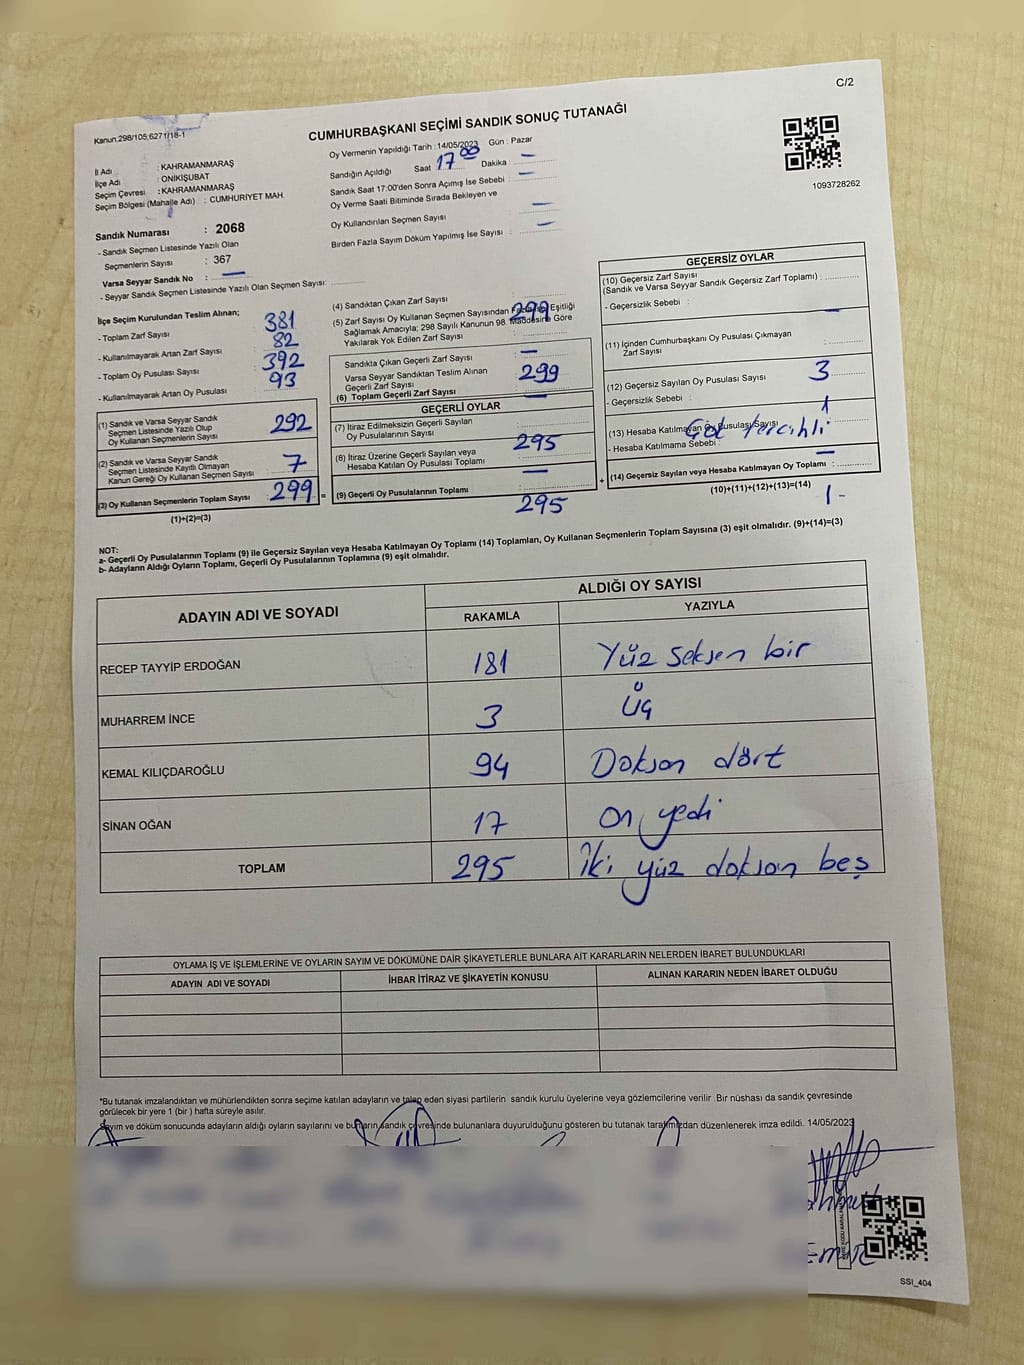 C/2
Kanun:298/105;6271/18-1
CUMHURBAŞKANI SEÇİMİ SANDIK SONUÇ TUTANAĞI
1093728262
İl Adı : KAHRAMANMARAŞ
İlçe Adı : ONİKİŞUBAT
Seçim Çevresi : KAHRAMANMARAŞ
Seçim Bölgesi (Mahalle Adı) : CUMHURİYET MAH
Sandık Numarası : 2068
- Sandık Seçmen Listesinde Yazılı Olan
Seçmenlerin Sayısı : 367
Varsa Seyyar Sandık No : —
- Seyyar Sandık Seçmen Listesinde Yazılı Olan Seçmen Sayısı:
Oy Vermenin Yapıldığı Tarih : 14/05/2023 Gün : Pazar
Sandığın Açıldığı Saat 17 00 Dakika : —
Sandık Saat 17:00'den Sonra Açımış İse Sebebi : —
Oy Verme Saati Bitiminde Sırada Bekleyen ve
Oy Kullandırılan Seçmen Sayısı : —
Birden Fazla Sayım Döküm Yapılmış İse Sayısı : —
İlçe Seçim Kurulundan Teslim Alınan;
- Toplam Zarf Sayısı : 381
- Kullanılmayarak Artan Zarf Sayısı : 82
- Toplam Oy Pusulası Sayısı : 392
- Kullanılmayarak Artan Oy Pusulası : 93
(1) Sandık ve Varsa Seyyar Sandık
Seçmen Listesinde Yazılı Olup
Oy Kullanan Seçmenlerin Sayısı : 292
(2) Sandık ve Varsa Seyyar Sandık
Seçmen Listesinde Kayıtlı Olmayan
Kanun Gereği Oy Kullanan Seçmen Sayısı : 7
(3) Oy Kullanan Seçmenlerin Toplam Sayısı : 299 =
(1)+(2)=(3)
(4) Sandıktan Çıkan Zarf Sayısı : 299
(5) Zarf Sayısı Oy Kullanan Seçmen Sayısından Fazla İse Eşitliği
Sağlamak Amacıyla; 298 Sayılı Kanunun 98. Maddesine Göre
Yakılarak Yok Edilen Zarf Sayısı : —
Sandıkta Çıkan Geçerli Zarf Sayısı : 299
Varsa Seyyar Sandıktan Teslim Alınan
Geçerli Zarf Sayısı : —
(6) Toplam Geçerli Zarf Sayısı
GEÇERLİ OYLAR
(7) İtiraz Edilmeksizin Geçerli Sayılan
Oy Pusulalarının Sayısı : 295
(8) İtiraz Üzerine Geçerli Sayılan veya
Hesaba Katılan Oy Pusulası Toplamı : —
(9) Geçerli Oy Pusulalarının Toplamı : 295 +
GEÇERSİZ OYLAR
(10) Geçersiz Zarf Sayısı
(Sandık ve Varsa Seyyar Sandık Geçersiz Zarf Toplamı) :
- Geçersizlik Sebebi : —
(11) İçinden Cumhurbaşkanı Oy Pusulası Çıkmayan
Zarf Sayısı : 3
(12) Geçersiz Sayılan Oy Pusulası Sayısı : 1
- Geçersizlik Sebebi : Çok tercihli
(13) Hesaba Katılmayan Oy Pusulası Sayısı
- Hesaba Katılmama Sebebi : —
(14) Geçersiz Sayılan veya Hesaba Katılmayan Oy Toplamı : 1 -
(10)+(11)+(12)+(13)=(14)
NOT:
a- Geçerli Oy Pusulalarının Toplamı (9) ile Geçersiz Sayılan veya Hesaba Katılmayan Oy Toplamı (14) Toplamları, Oy Kullanan Seçmenlerin Toplam Sayısına (3) eşit olmalıdır. (9)+(14)=(3)
b- Adayların Aldığı Oyların Toplamı, Geçerli Oy Pusulalarının Toplamına (9) eşit olmalıdır.
ADAYIN ADI VE SOYADI ALDIĞI OY SAYISI
RAKAMLA YAZIYLA
RECEP TAYYİP ERDOĞAN 181 Yüz Seksen bir
MUHARREM İNCE 3 Üç
KEMAL KILIÇDAROĞLU 94 Doksan dört
SİNAN OĞAN 17 On yedi
TOPLAM 295 İki yüz doksan beş
OYLAMA İŞ VE İŞLEMLERİNE VE OYLARIN SAYIM VE DÖKÜMÜNE DAİR ŞİKAYETLERLE BUNLARA AİT KARARLARIN NELERDEN İBARET BULUNDUKLARI
ADAYIN ADI VE SOYADI İHBAR İTİRAZ VE ŞİKAYETİN KONUSU ALINAN KARARIN NEDEN İBARET OLDUĞU
*Bu tutanak imzalandıktan ve mühürlendikten sonra seçime katılan adayların ve talep eden siyasi partilerin sandık kurulu üyelerine veya gözlemcilerine verilir. Bir nüshası da sandık çevresinde
görülecek bir yere 1 (bir) hafta süreyle asılır.
Sayım ve döküm sonucunda adayların aldığı oyların sayılarını ve bunların sandık çevresinde bulunanlara duyurulduğunu gösteren bu tutanak tarafımızdan düzenlenerek imza edildi. 14/05/2023
SSI_404